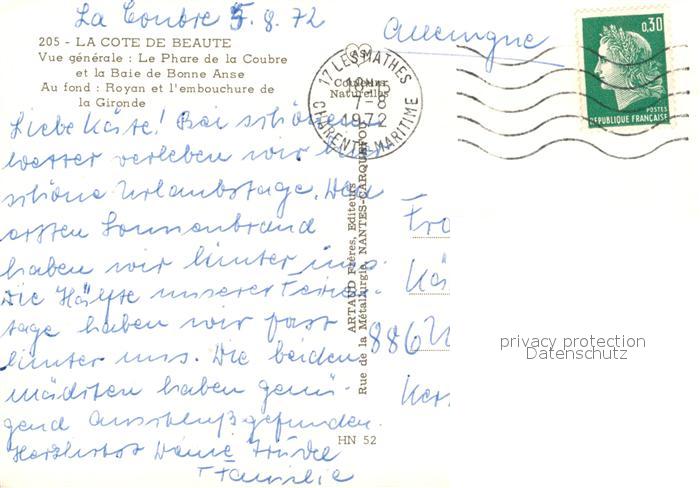 La Coubre 5.8.72
Allemagne
205 - LA COTE DE BEAUTE
Vue générale : Le Phare de la Coubre
et la Baie de Bonne Anse
Au fond : Royan et l'embouchure de
la Gironde
Couleurs
Naturelles
17 LES MATHES
18H
7-8
1972
CHARENTE MARITIME
0,30
POSTES
REPUBLIQUE FRANÇAISE
Liebe Käte! Bei schönem
Wetter verleben wir hier
schöne Urlaubstage. Den
ersten Sonnenbrand
haben wir hinter uns.
Die Hälfte unserer Ferien-
tage haben wir fast
hinter uns. Die beiden
Mädchen haben genü-
gend Anschluß gefunden.
Herzlichst Deine Trudel
+ Familie
ARTAUD Frères, Editeurs
Rue de la Métallurgie, NANTES-CARQUEFOU
HN 52
Fra
Kä
886
privacy protection
Datenschutz